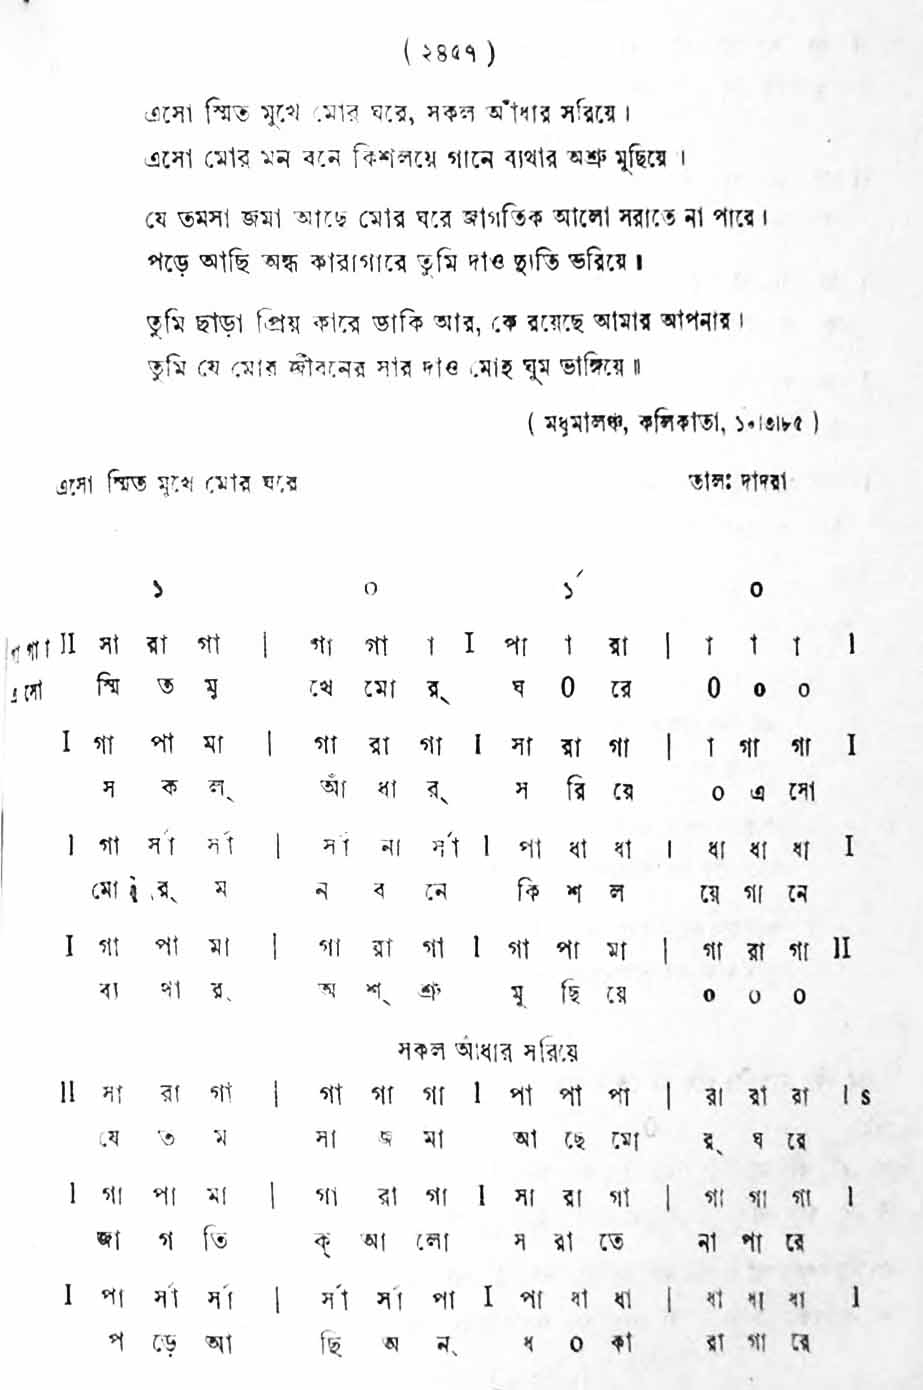 ( ২৪৫৭ )
এসো স্মিত মুখে মোর ঘরে, সকল আঁধার সরিয়ে।
এসো মোর মন বনে কিশলয়ে গানে ব্যথার অশ্রু মুছিয়ে ।
যে তমসা জমা আছে মোর ঘরে জাগতিক আলো সরাতে না পারে।
পড়ে আছি অন্ধ কারাগারে তুমি দাও দ্যুতি ভরিয়ে॥
তুমি ছাড়া প্রিয় কারে ডাকি আর, কে রয়েছে আমার আপনার।
তুমি যে মোর জীবনের সার দাও মোহ ঘুম ভাঙ্গিয়ে॥
( মধুমালঞ্চ, কলিকাতা, ১০।৩।৮৫ )
এসো স্মিত মুখে মোর ঘরে তাল: দাদরা
১ ০ ১́ ০
গা গা II সা রা গা | গা গা া I পা া রা | া া া I
এ সো স্মি ত মু খে মো র্ ঘ 0 রে 0 ০ ০
I গা পা মা | গা রা গা I সা রা গা | া গা গা I
স ক ল্ আঁ ধা র্ স রি য়ে ০ এ সো
I গা র্সা র্সা | র্সা না র্সা I পা ধা ধা | ধা ধা ধা I
মো র্ ম ন ব নে কি শ ল য়ে গা নে
I গা পা মা | গা রা গা I গা পা মা | গা রা গা II
ব্য থা র্ অ শ্ শ্রু মু ছি য়ে ০ ০ ০
সকল আঁধার সরিয়ে
II সা রা গা | গা গা গা I পা পা পা | রা রা রা I s
যে ত ম সা জ মা আ ছে মো র্ ঘ রে
I গা পা মা | গা রা গা I সা রা গা | গা গা গা I
জা গ তি ক্ আ লো স রা তে না পা রে
I পা র্সা র্সা | র্সা র্সা পা I পা ধা ধা | ধা ধা ধা I
প ড়ে আ ছি অ ন্ ধ ০ কা রা গা রে